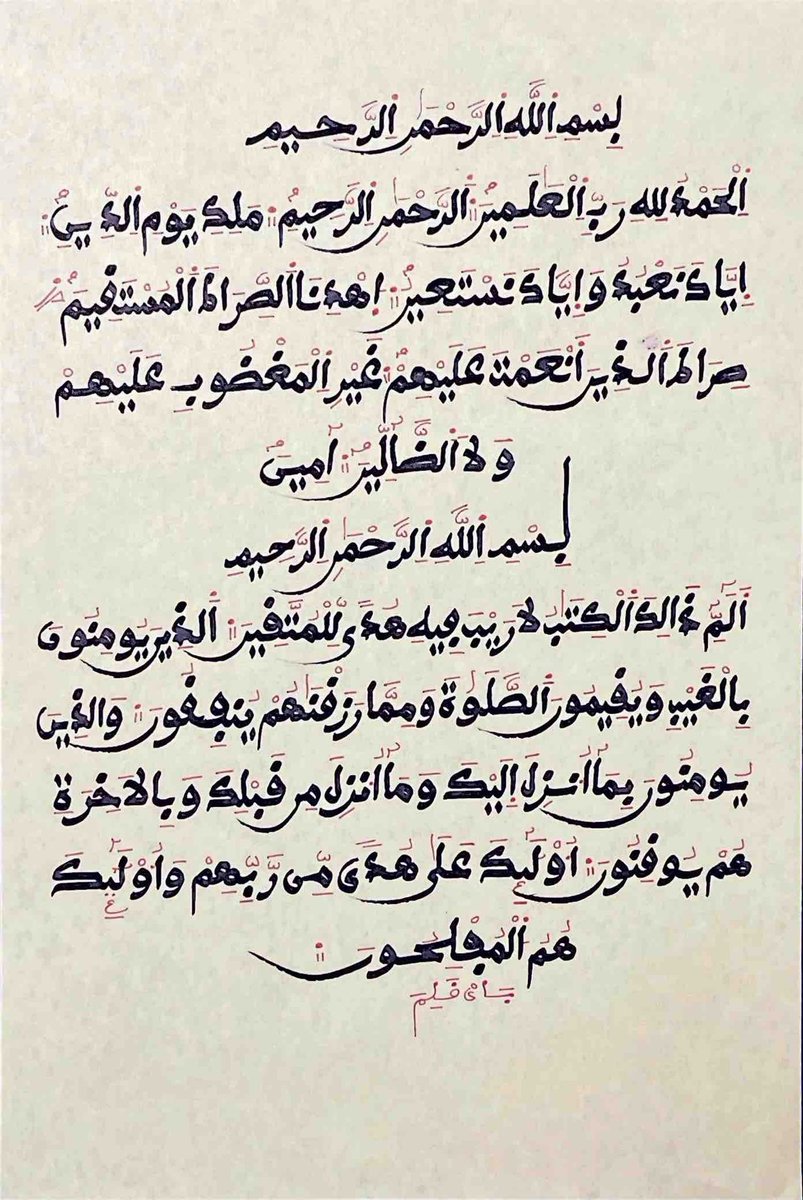 بِسْمِ اِللَّهِ اِلرَّحْمَٰنِ اِلرَّحِيمِ
اَلْحَمْدُ لِلهِ رَبِّ اِلْعَٰلَمِينَ اَلرَّحْمَٰنِ اِلرَّحِيمِ مَلِكِ يَوْمِ اِلدِّينِ
إِيَّاكَ نَعْبُدُ وَإِيَّاكَ نَسْتَعِينُ اِهْدِنَا اَلصِّرَاطَ اَلْمُسْتَقِيمَ
صِرَاطَ اَلذِينَ أَنْعَمْتَ عَلَيْهِمْ غَيْرِ اِلْمَغْضُوبِ عَلَيْهِمْ
وَلَا اَلضَّآلِّينَ ءَامِينَ
بِسْمِ اِللَّهِ اِلرَّحْمَٰنِ اِلرَّحِيمِ
أَلَٓمِّٓ ذَالِكَ اَلْكِتَٰبُ لَا رَيْبَ فِيهِ هُدىً لِّلْمُتَّقِينَ اَلذِينَ يُومِنُونَ
بِالْغَيْبِ وَيُقِيمُونَ اَلصَّلَوٰةَ وَمِمَّا رَزَقْنَٰهُمْ يُنفِقُونَ وَالذِينَ
يُومِنُونَ بِمَآ أُنزِلَ إِلَيْكَ وَمَآ أُنزِلَ مِن قَبْلِكَ وَبِالَاخِرَةِ
هُمْ يُوقِنُونَ أُوْلَٰٓئِكَ عَلَىٰ هُدىً مِّن رَّبِّهِمْ وَأُوْلَٰٓئِكَ
هُمُ اُلْمُفْلِحُونَ